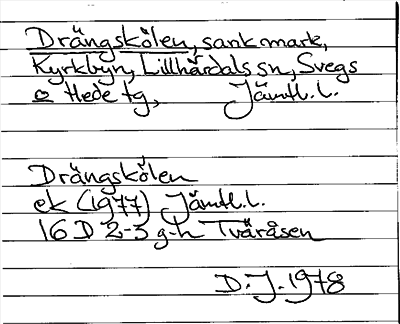 Drängskölen, sank mark,
Kyrkbyn, Lillhärdals sn, Svegs
o Hede tg, Jämtl. l.
Drängskölen
ek (1977) Jämtl. l.
16 D 2-3 g-h Tväråsen
D. J. 1978